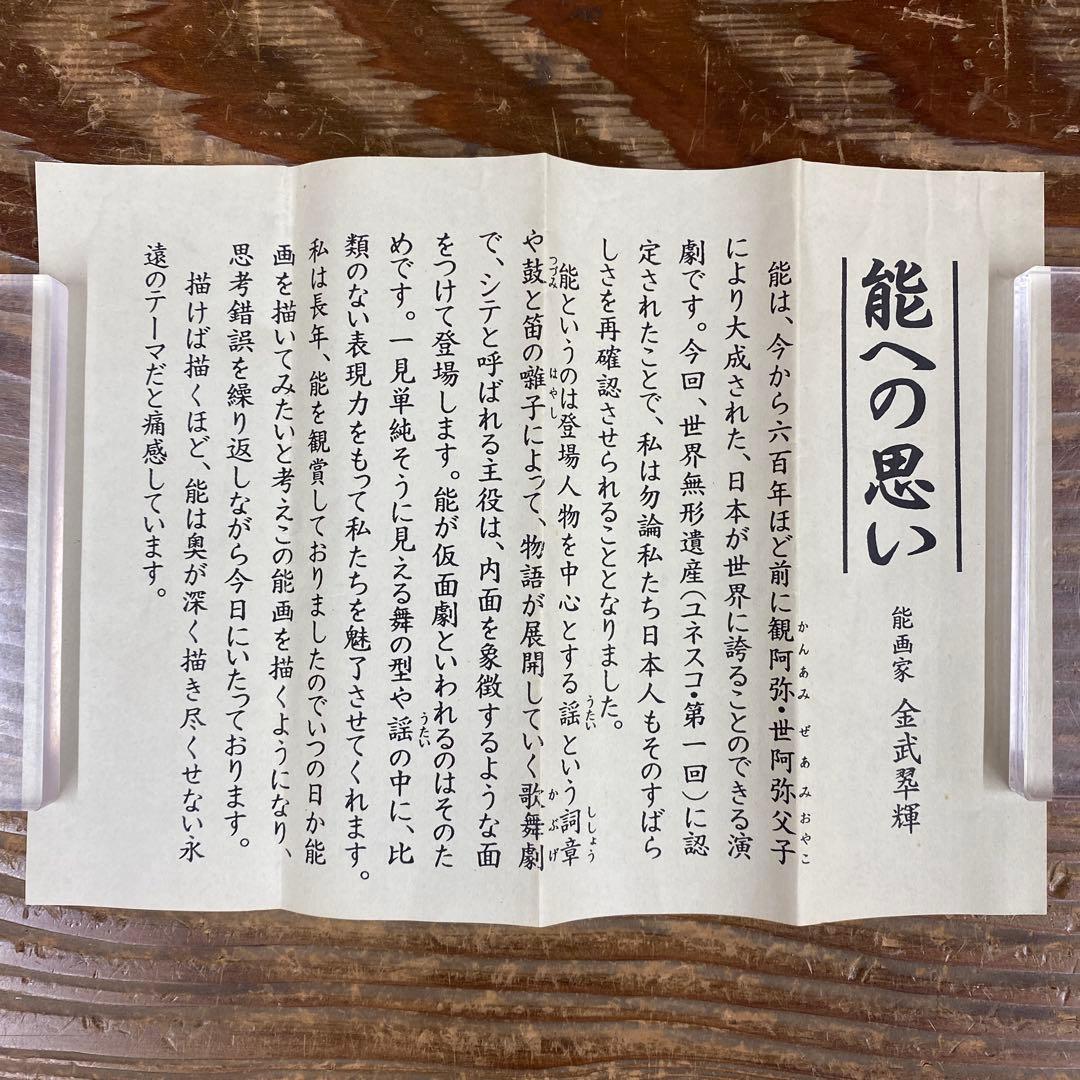 能への思い
能画家 金武翠輝
能は、今から六百年ほど前に観阿弥・世阿弥父子
かんあみ ぜあみおやこ
により大成された、日本が世界に誇ることのできる演
劇です。今回、世界無形遺産(ユネスコ・第一回)に認
定されたことで、私は勿論私たち日本人もそのすばら
しさを再確認させられることとなりました。
能というのは登場人物を中心とする謡という詞章
うたい ししょう
や鼓と笛の囃子によって、物語が展開していく歌舞劇
つづみ はやし かぶげ
で、シテと呼ばれる主役は、内面を象徴するような面
をつけて登場します。能が仮面劇といわれるのはそのた
めです。一見単純そうに見える舞の型や謡の中に、比
うたい
類のない表現力をもって私たちを魅了させてくれます。
私は長年、能を観賞しておりましたのでいつの日か能
画を描いてみたいと考えこの能画を描くようになり、
思考錯誤を繰り返しながら今日にいたっております。
描けば描くほど、能は奥が深く描き尽くせない永
遠のテーマだと痛感しています。